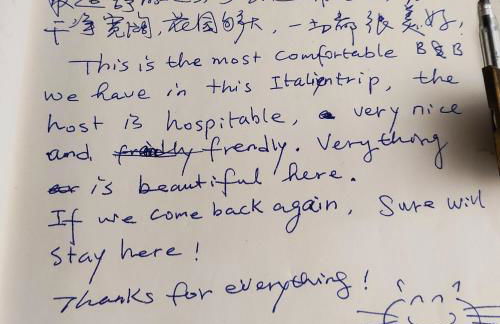 干净宽阔,花园多大,一切都很美好!
This is the most comfortable B&B
we have in this Italientrip, the
host is hospitable, very nice
and frendly. Verything
is beautiful here.
If we come back again, Sure will
stay here!
Thanks for everything!